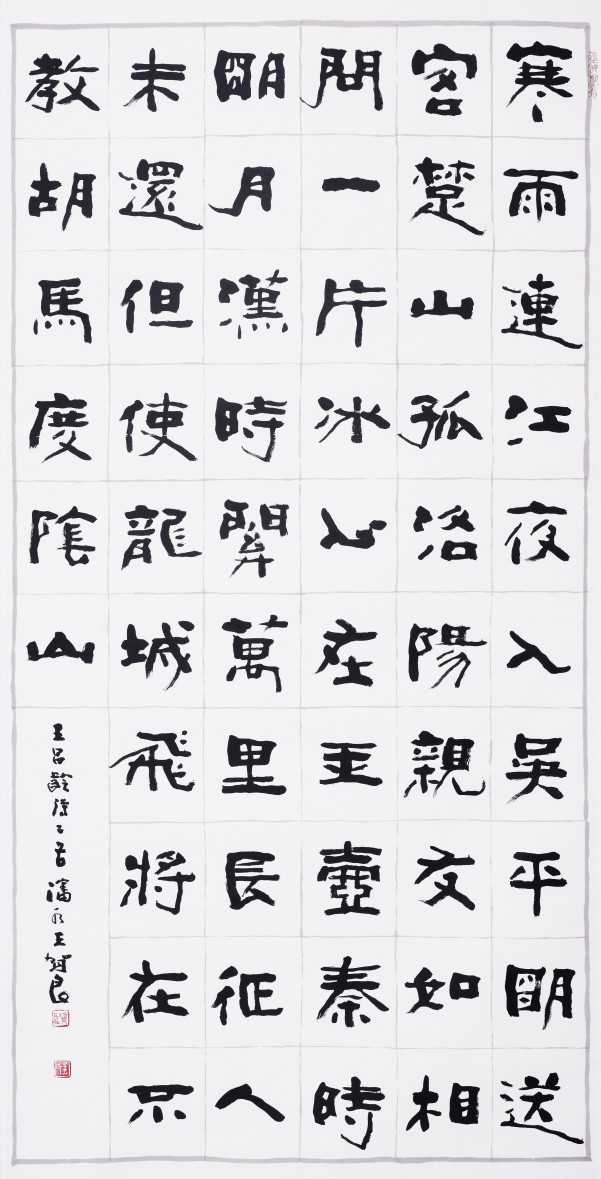 寒雨連江夜入吳平明送
客楚山孤洛陽親友如相
問一片冰心在玉壺秦時
明月漢時關萬里長征人
未還但使龍城飛將在不
教胡馬度陰山
王昌齡詩二首 王賀良